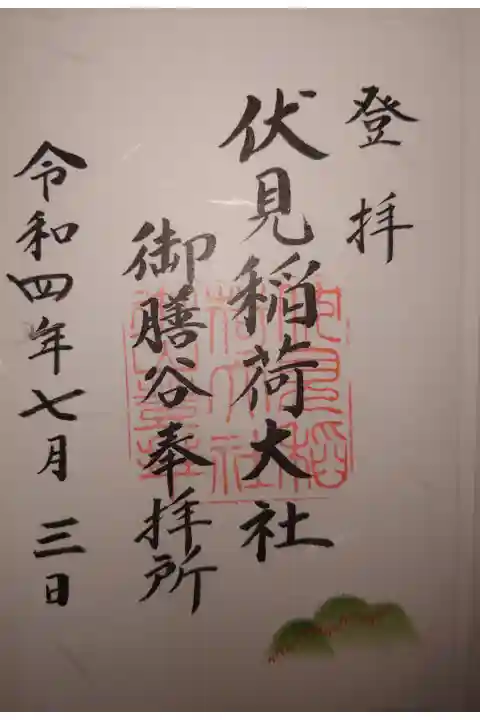 登拝
伏見稲荷大社
御膳谷奉拝所
令和四年七月三日